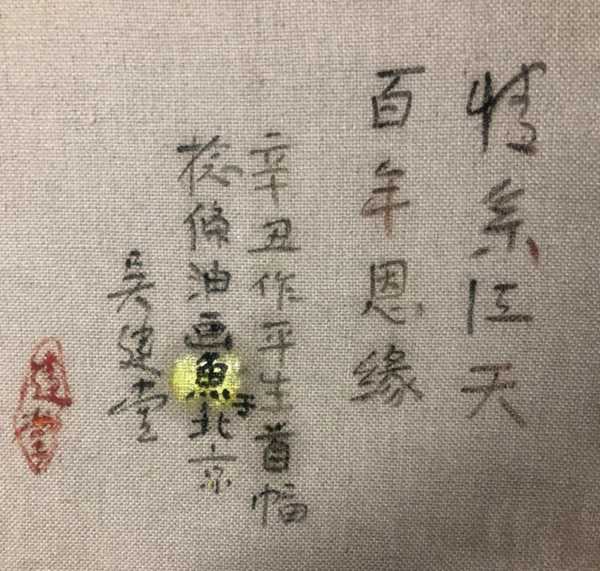 情系江天
百年恩缘
辛丑作平生首幅
捻條油画魚于北京
吴建堂
建堂